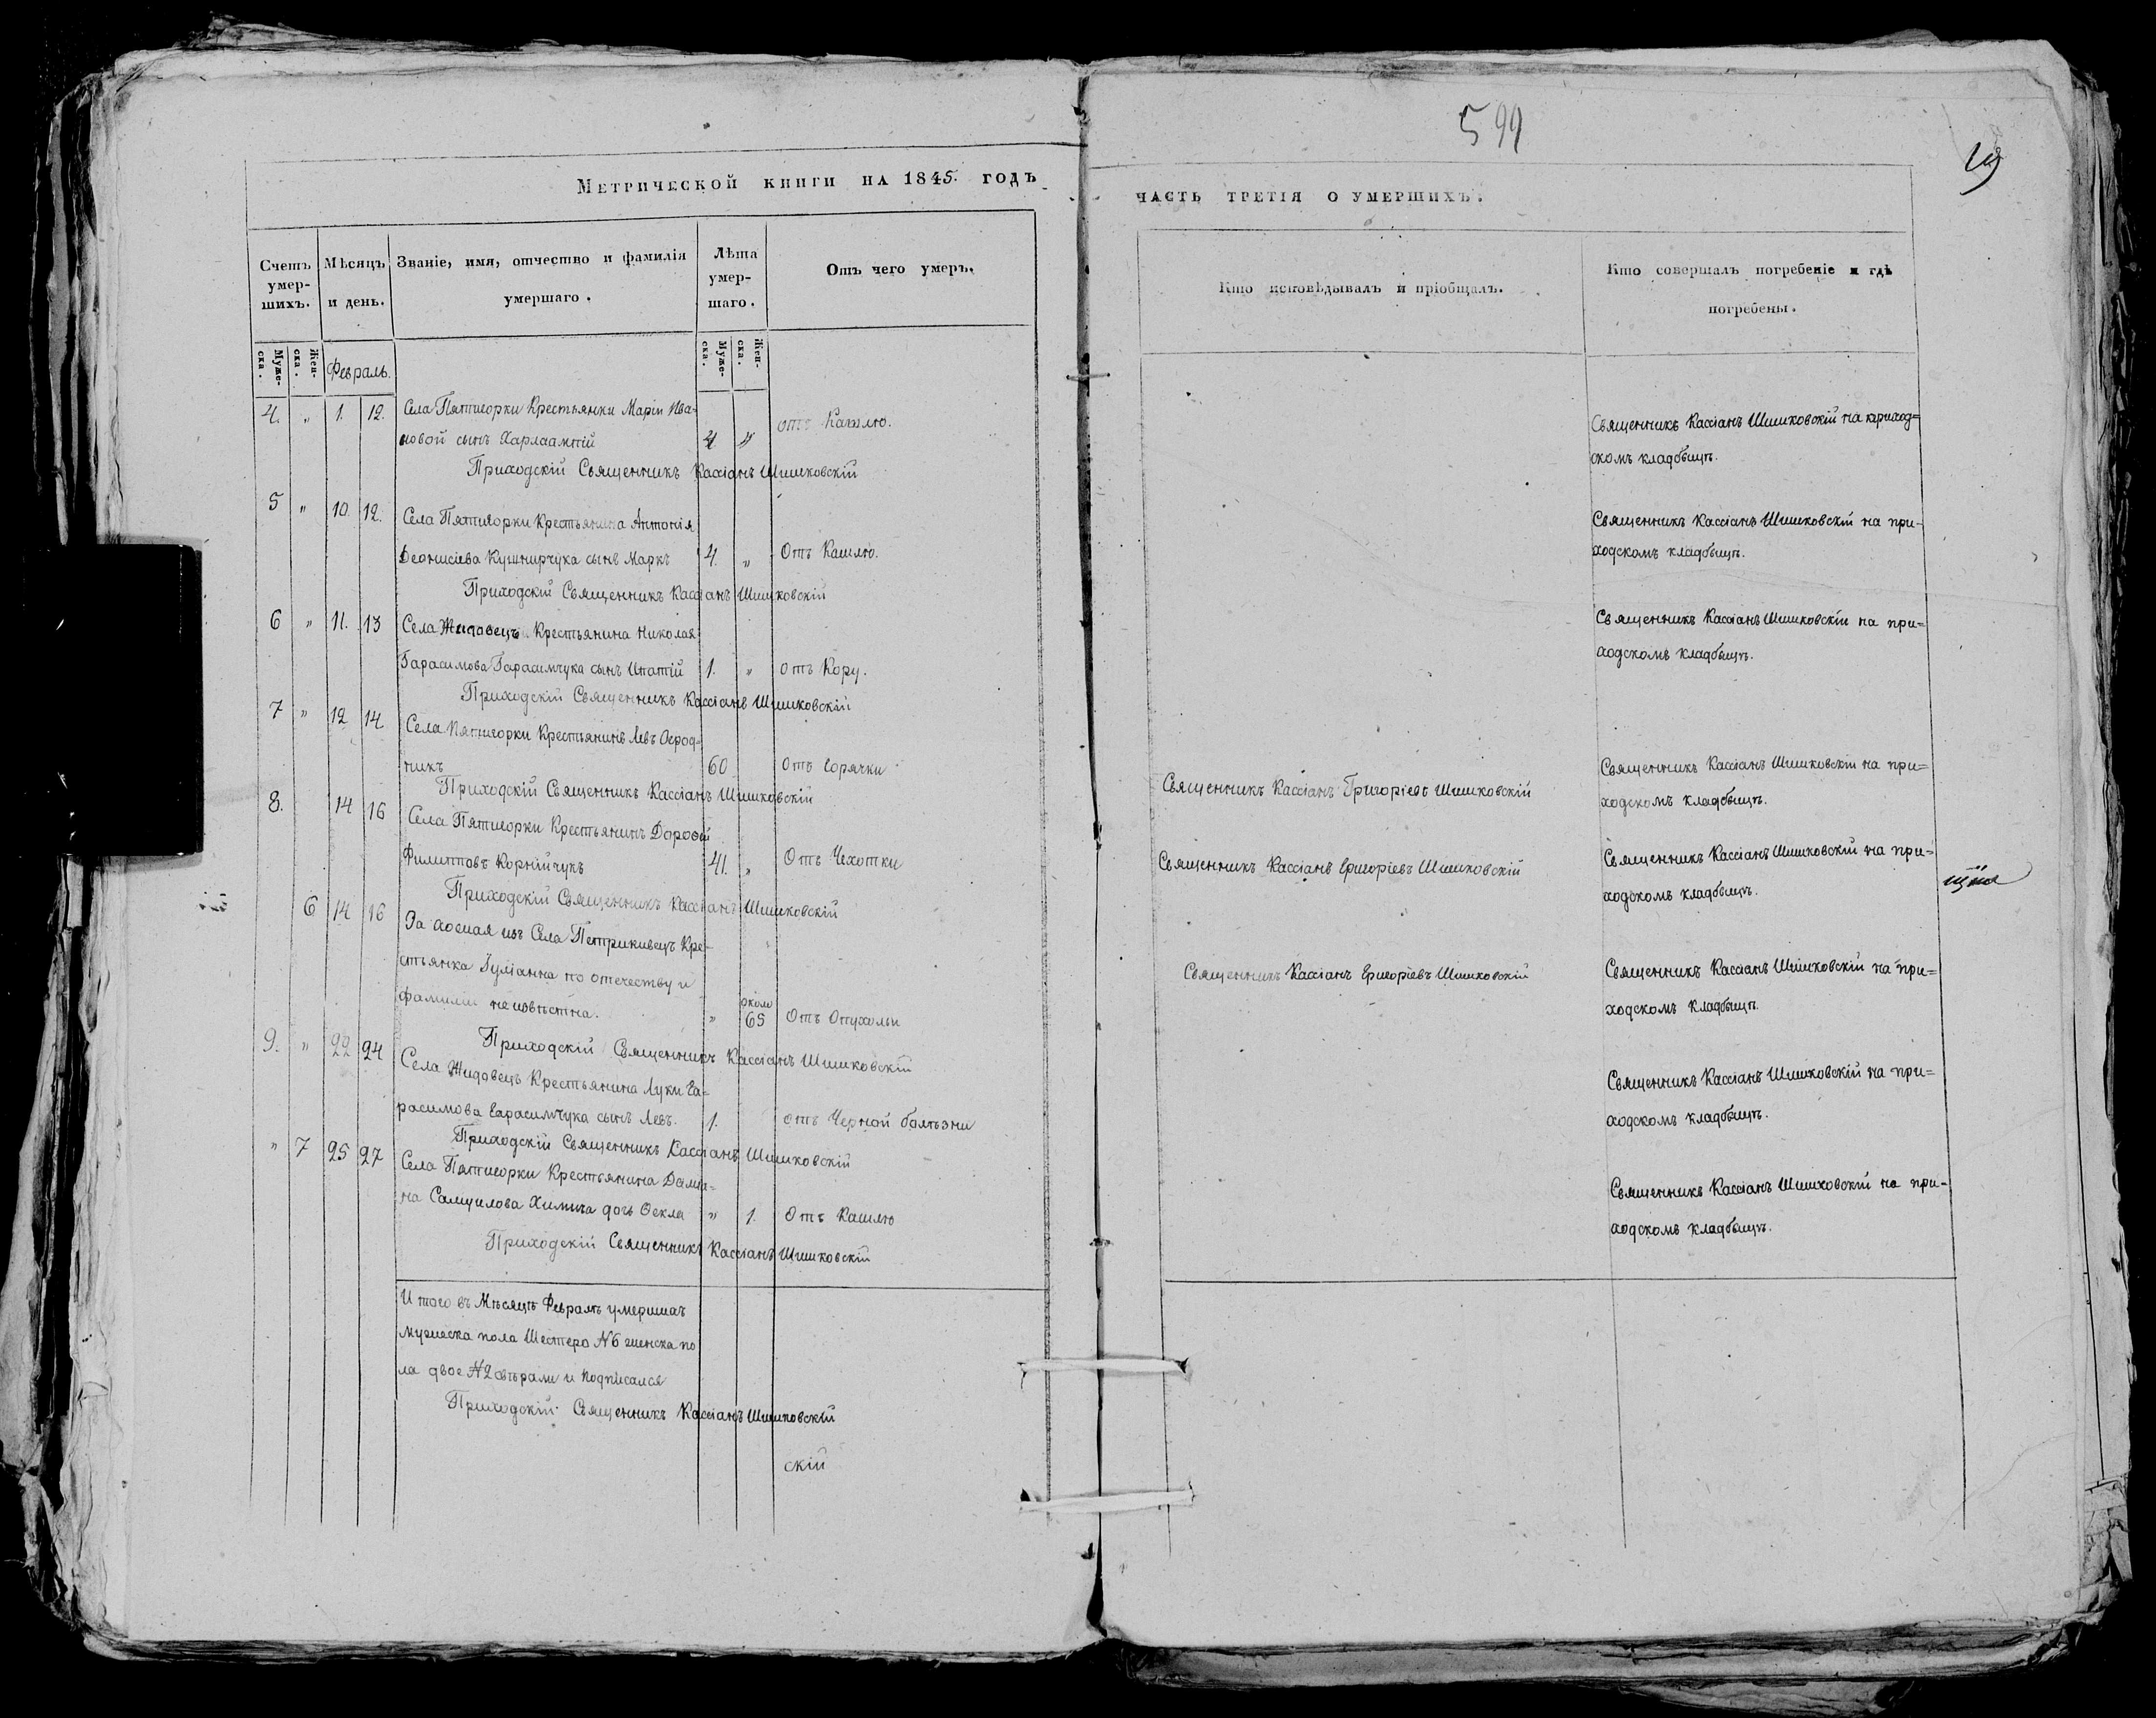 599
19
Метрической книги на 1845. годъ
часть третія о умершихъ.
Счетъ умер-шихъ.
Мѣсяцъ и день.
Званіе, имя, отчество и фамилія умершаго.
Лѣта умер-шаго.
Отъ чего умеръ.
Кто исповѣдывалъ и пріобщалъ.
Кто совершалъ погребеніе и гдѣ погребены.
Муже-ска. Жен-ска. Февраль. Муже-ска. Жен-ска.
4. " 1. 12. Села Пятигорки Крестьянки Маріи Ива-
новой сынъ Харлаампій 4 " отъ Кашлю.
Священникъ Кассіанъ Шишковскій на приход=
скомъ кладбищѣ.
Приходскій Священникъ Кассіанъ Шишковскій
5 " 10. 12. Села Пятигорки Крестьянина Антонія
Деонисіева Кушнирчука сынъ Маркъ 4. " Отъ Кашлю.
Священникъ Кассіанъ Шишковскій на при-
ходскомъ кладбищѣ.
Приходскій Священникъ Кассіанъ Шишковскій
6 " 11. 13 Села Жидовецъ Крестьянина Николая
Гарасимова Гарасимчука сынъ Ипатій 1. " отъ Кору.
Священникъ Кассіанъ Шишковскій на при=
ходскомъ кладбищѣ.
Приходскій Священникъ Кассіанъ Шишковскій
7 " 12 14 Села Пятигорки Крестьянинъ Левъ Огрод=
никъ 60 Отъ Горячки
Священникъ Кассіанъ Григоріевъ Шишковскій
Священникъ Кассіанъ Шишковскій на при=
ходскомъ кладбищѣ.
Приходскій Священникъ Кассіанъ Шишковскій
8. 14 16 Села Пятигорки Крестьянинъ Дорофей
Филипповъ Корнійчукъ 41. " Отъ Чехотки
Священникъ Кассіанъ Григоріевъ Шишковскій
Священникъ Кассіанъ Шишковскій на при=
ходскомъ кладбищѣ.
Приходскій Священникъ Кассіанъ Шишковскій
6 14 16 За хожая изъ Села Петрикивецъ Кре-
стьянка Іуліанна по отечеству и
фамиліи не извѣстна. " около 65 Отъ Опухоли
Священникъ Кассіанъ Григоріевъ Шишковскій
Священникъ Кассіанъ Шишковскій на при=
ходскомъ кладбищѣ.
Приходскій Священникъ Кассіанъ Шишковскій
9. " 22 24 Села Жидовецъ Крестьянина Луки Га=
расимова Гарасимчука сынъ Левъ. 1. отъ Черной болѣзни
Священникъ Кассіанъ Шишковскій на при=
ходскомъ кладбищѣ.
Приходскій Священникъ Кассіанъ Шишковскій
" 7 25 27 Села Пятигорки Крестьянина Даміа=
на Самуилова Химича дочь Фекла " 1. Отъ Кашлю
Священникъ Кассіанъ Шишковскій на при-
ходскомъ кладбищѣ.
Приходскій Священникъ Кассіанъ Шишковскій
Итого въ Мѣсяцѣ Февралѣ умершихъ
мужеска пола Шестеро №6 женска по
ла двое №2 свѣрали и подписался
Приходскій Священникъ Кассіанъ Шишковскій
скій